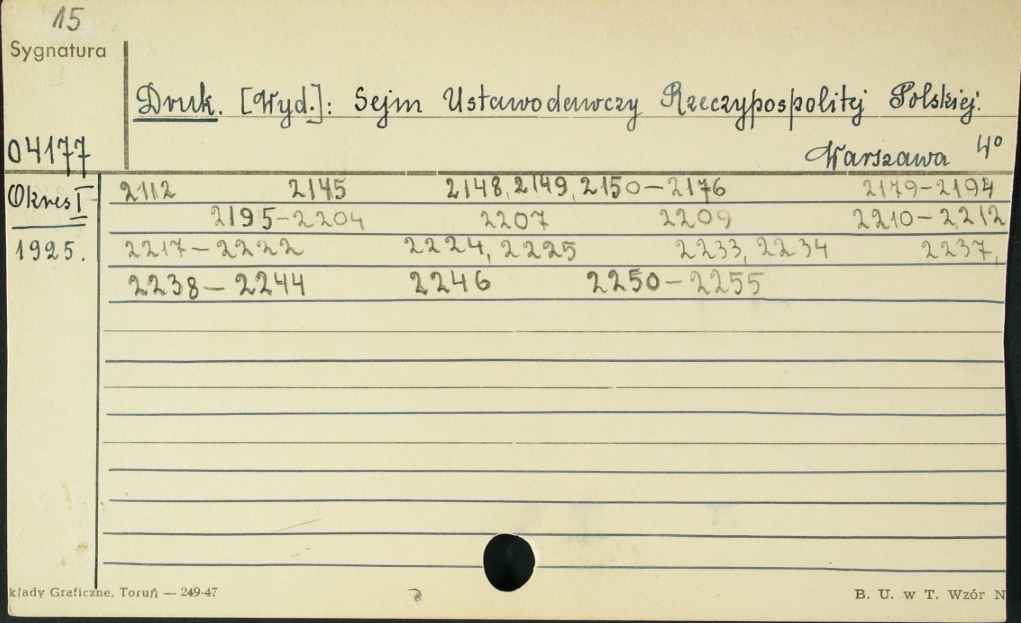 15
Sygnatura
Druk. [Wyd.]: Sejm Ustawodawczy Rzeczypospolitej Polskiej.
04177
Warszawa 4°
Okres I 2112 2145 2148, 2149, 2150–2176 2179–2194
2195–2204 2207 2209 2210–2212
1925. 2217–2222 2224, 2225 2233, 2234 2237,
2238–2244 2246 2250–2255
kłady Graficzne, Toruń — 249-47
B. U. w T. Wzór N